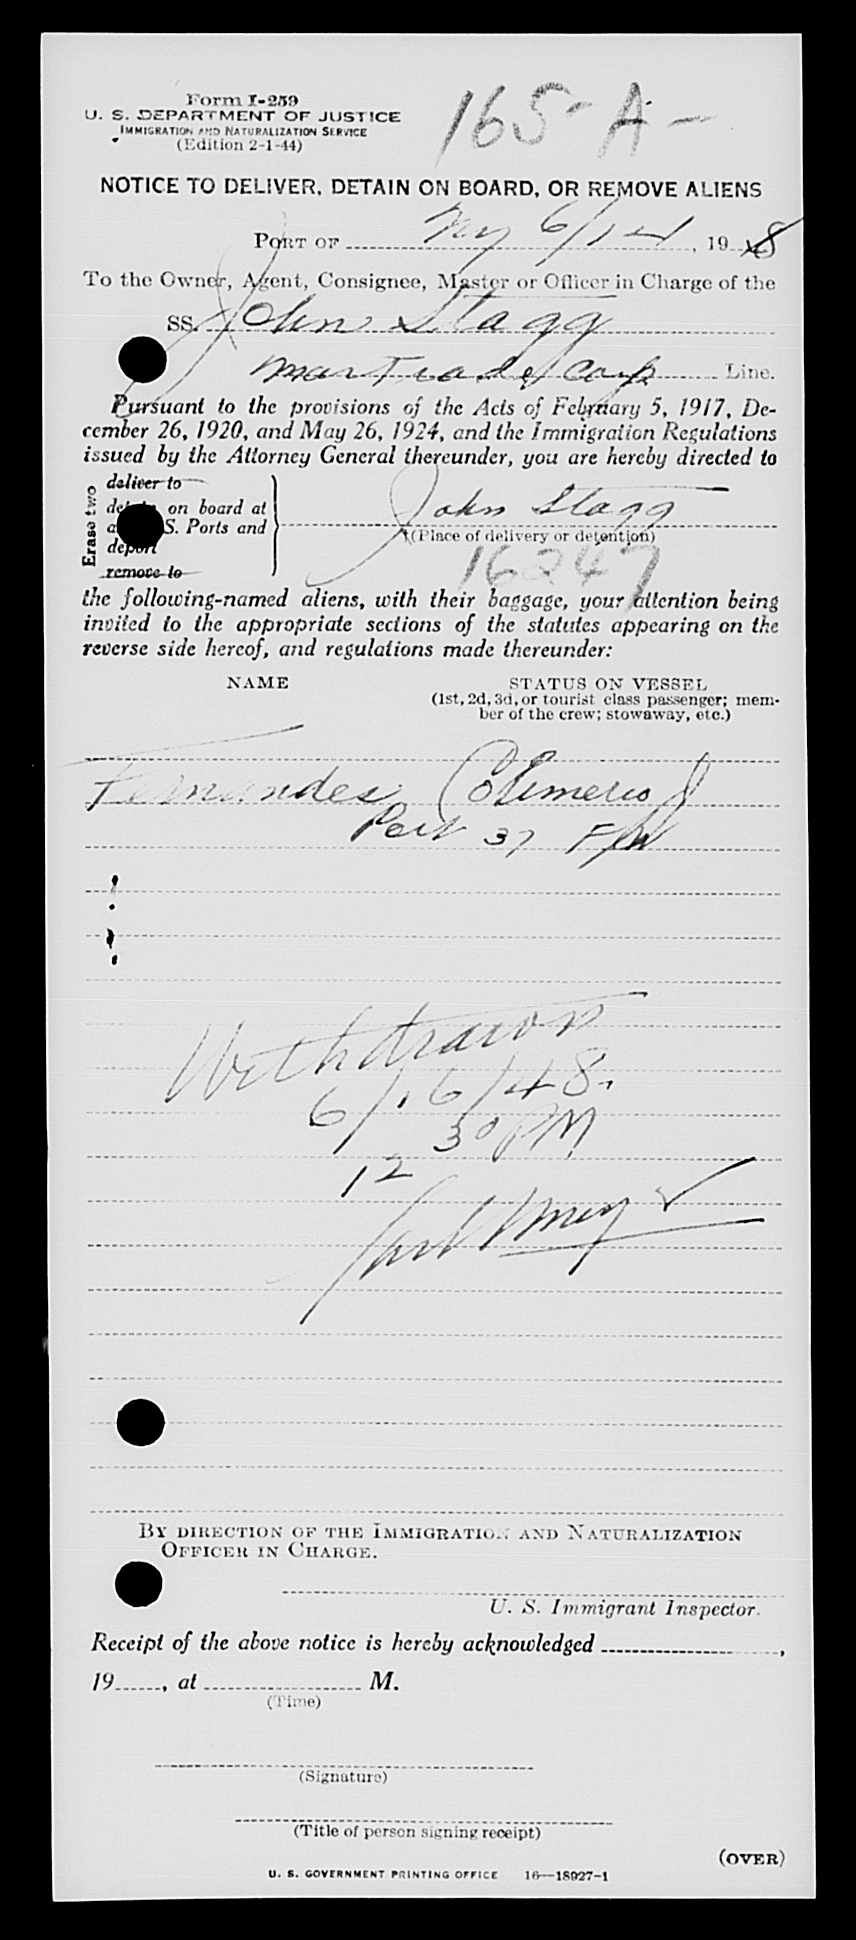 Form I-259
U. S. DEPARTMENT OF JUSTICE
IMMIGRATION AND NATURALIZATION SERVICE
(Edition 2-1-44)
165-A-
NOTICE TO DELIVER, DETAIN ON BOARD, OR REMOVE ALIENS
PORT OF NY 6/14, 19 48
To the Owner, Agent, Consignee, Master or Officer in Charge of the
SS. John Stagg
Mar Trade Corp Line.
Pursuant to the provisions of the Acts of February 5, 1917, De-
cember 26, 1920, and May 26, 1924, and the Immigration Regulations
issued by the Attorney General thereunder, you are hereby directed to
Erase two
deliver to
on board at
S. Ports and
deport
remove to
John Stagg
(Place of delivery or detention)
16247
the following-named aliens, with their baggage, your attention being
invited to the appropriate sections of the statutes appearing on the
reverse side hereof, and regulations made thereunder:
NAME
STATUS ON VESSEL
(1st, 2d, 3d, or tourist class passenger; mem-
ber of the crew; stowaway, etc.)
Fernandes
Port 37
Withdrawn
6/16/48.
12 30 PM
BY DIRECTION OF THE IMMIGRATION AND NATURALIZATION
OFFICER IN CHARGE.
U. S. Immigrant Inspector.
Receipt of the above notice is hereby acknowledged ,
19 , at M.
(Time)
(Signature)
(Title of person signing receipt)
(OVER)
U. S. GOVERNMENT PRINTING OFFICE 16—18927-1